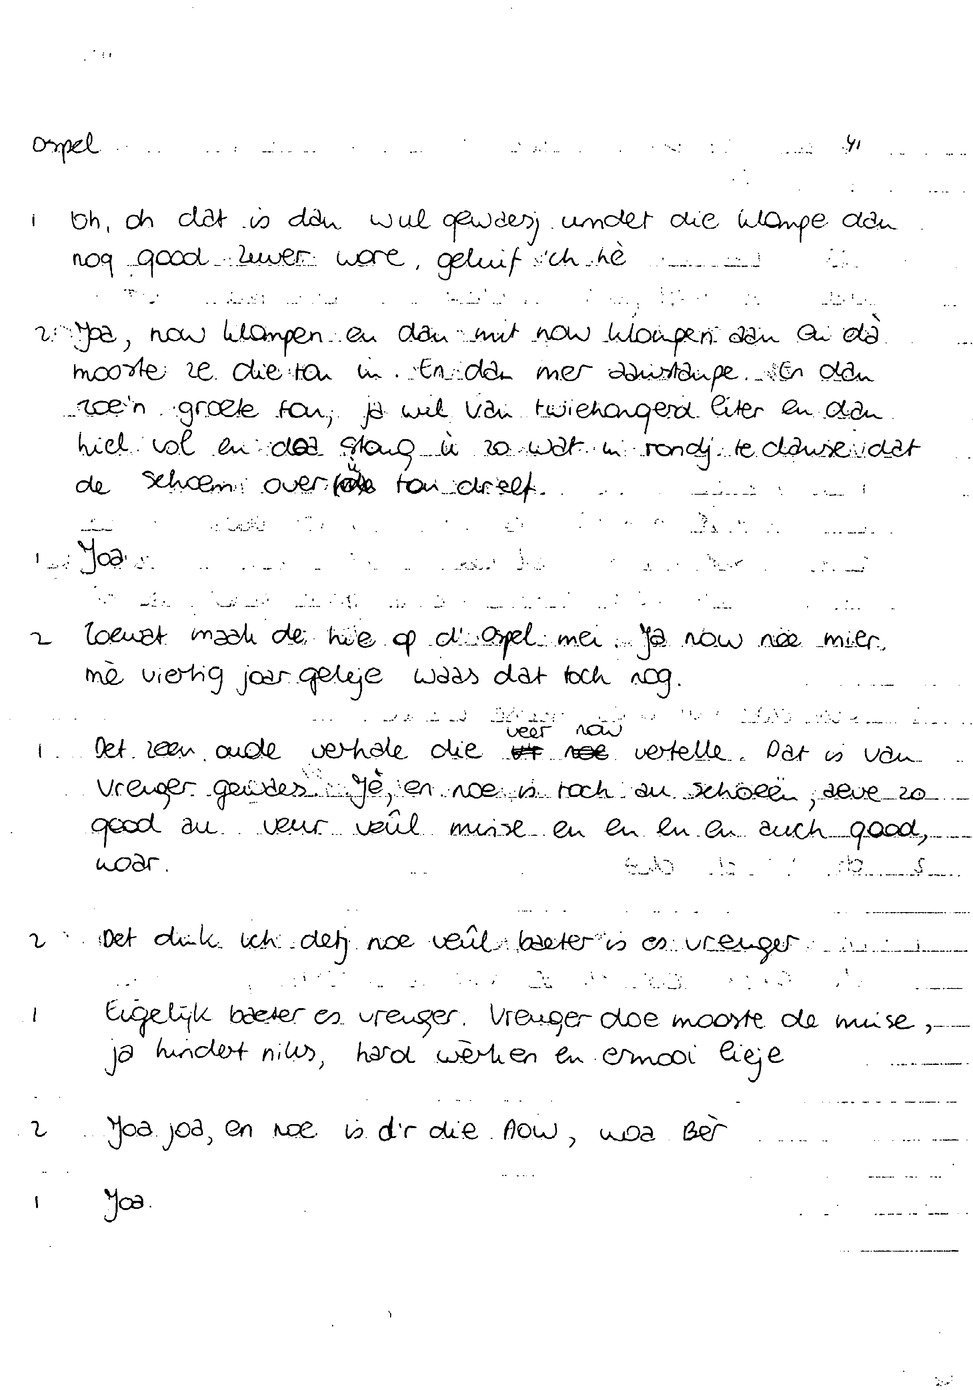 Ospel 41
1 Oh, oh dat is dan wul gewaesj umdet die klompe dan
nog good zuver wore, geluif 'ch hè
2 Joa, now klompen en dan mit now klompen aan en dà
mooste ze die ton in. En dan mer aanstampe. En dan
zoe'n groete ton, ja wil van twiehongerd liter en dan
hiel vol en doa stong ù zo wat in rondj te danse dat
de schoem over ù ton dreef.
1 Joa.
2 Zoewat maak de hie op d' Ospel mei. Ja now nee mier.
mè viertig joar geleje waas dat toch nog.
1. Det zeen oude verhale die veer now vertelle. Dat is van
vrenger gewaes. Jè, en noe is toch au schoeën, aeve zo
good au veur veûl minse en en en en auch good,
woar.
2 Det dink ich detj noe veûl baeter is es vrenger
1 Eigelijk baeter es vrenger. Vrenger doe mooste de minse,
ja hindert niks, hard wèrken en ermooi lieje
2 Joa joa, en noe is d'r die AOW, woa Bèr
1 Joa.